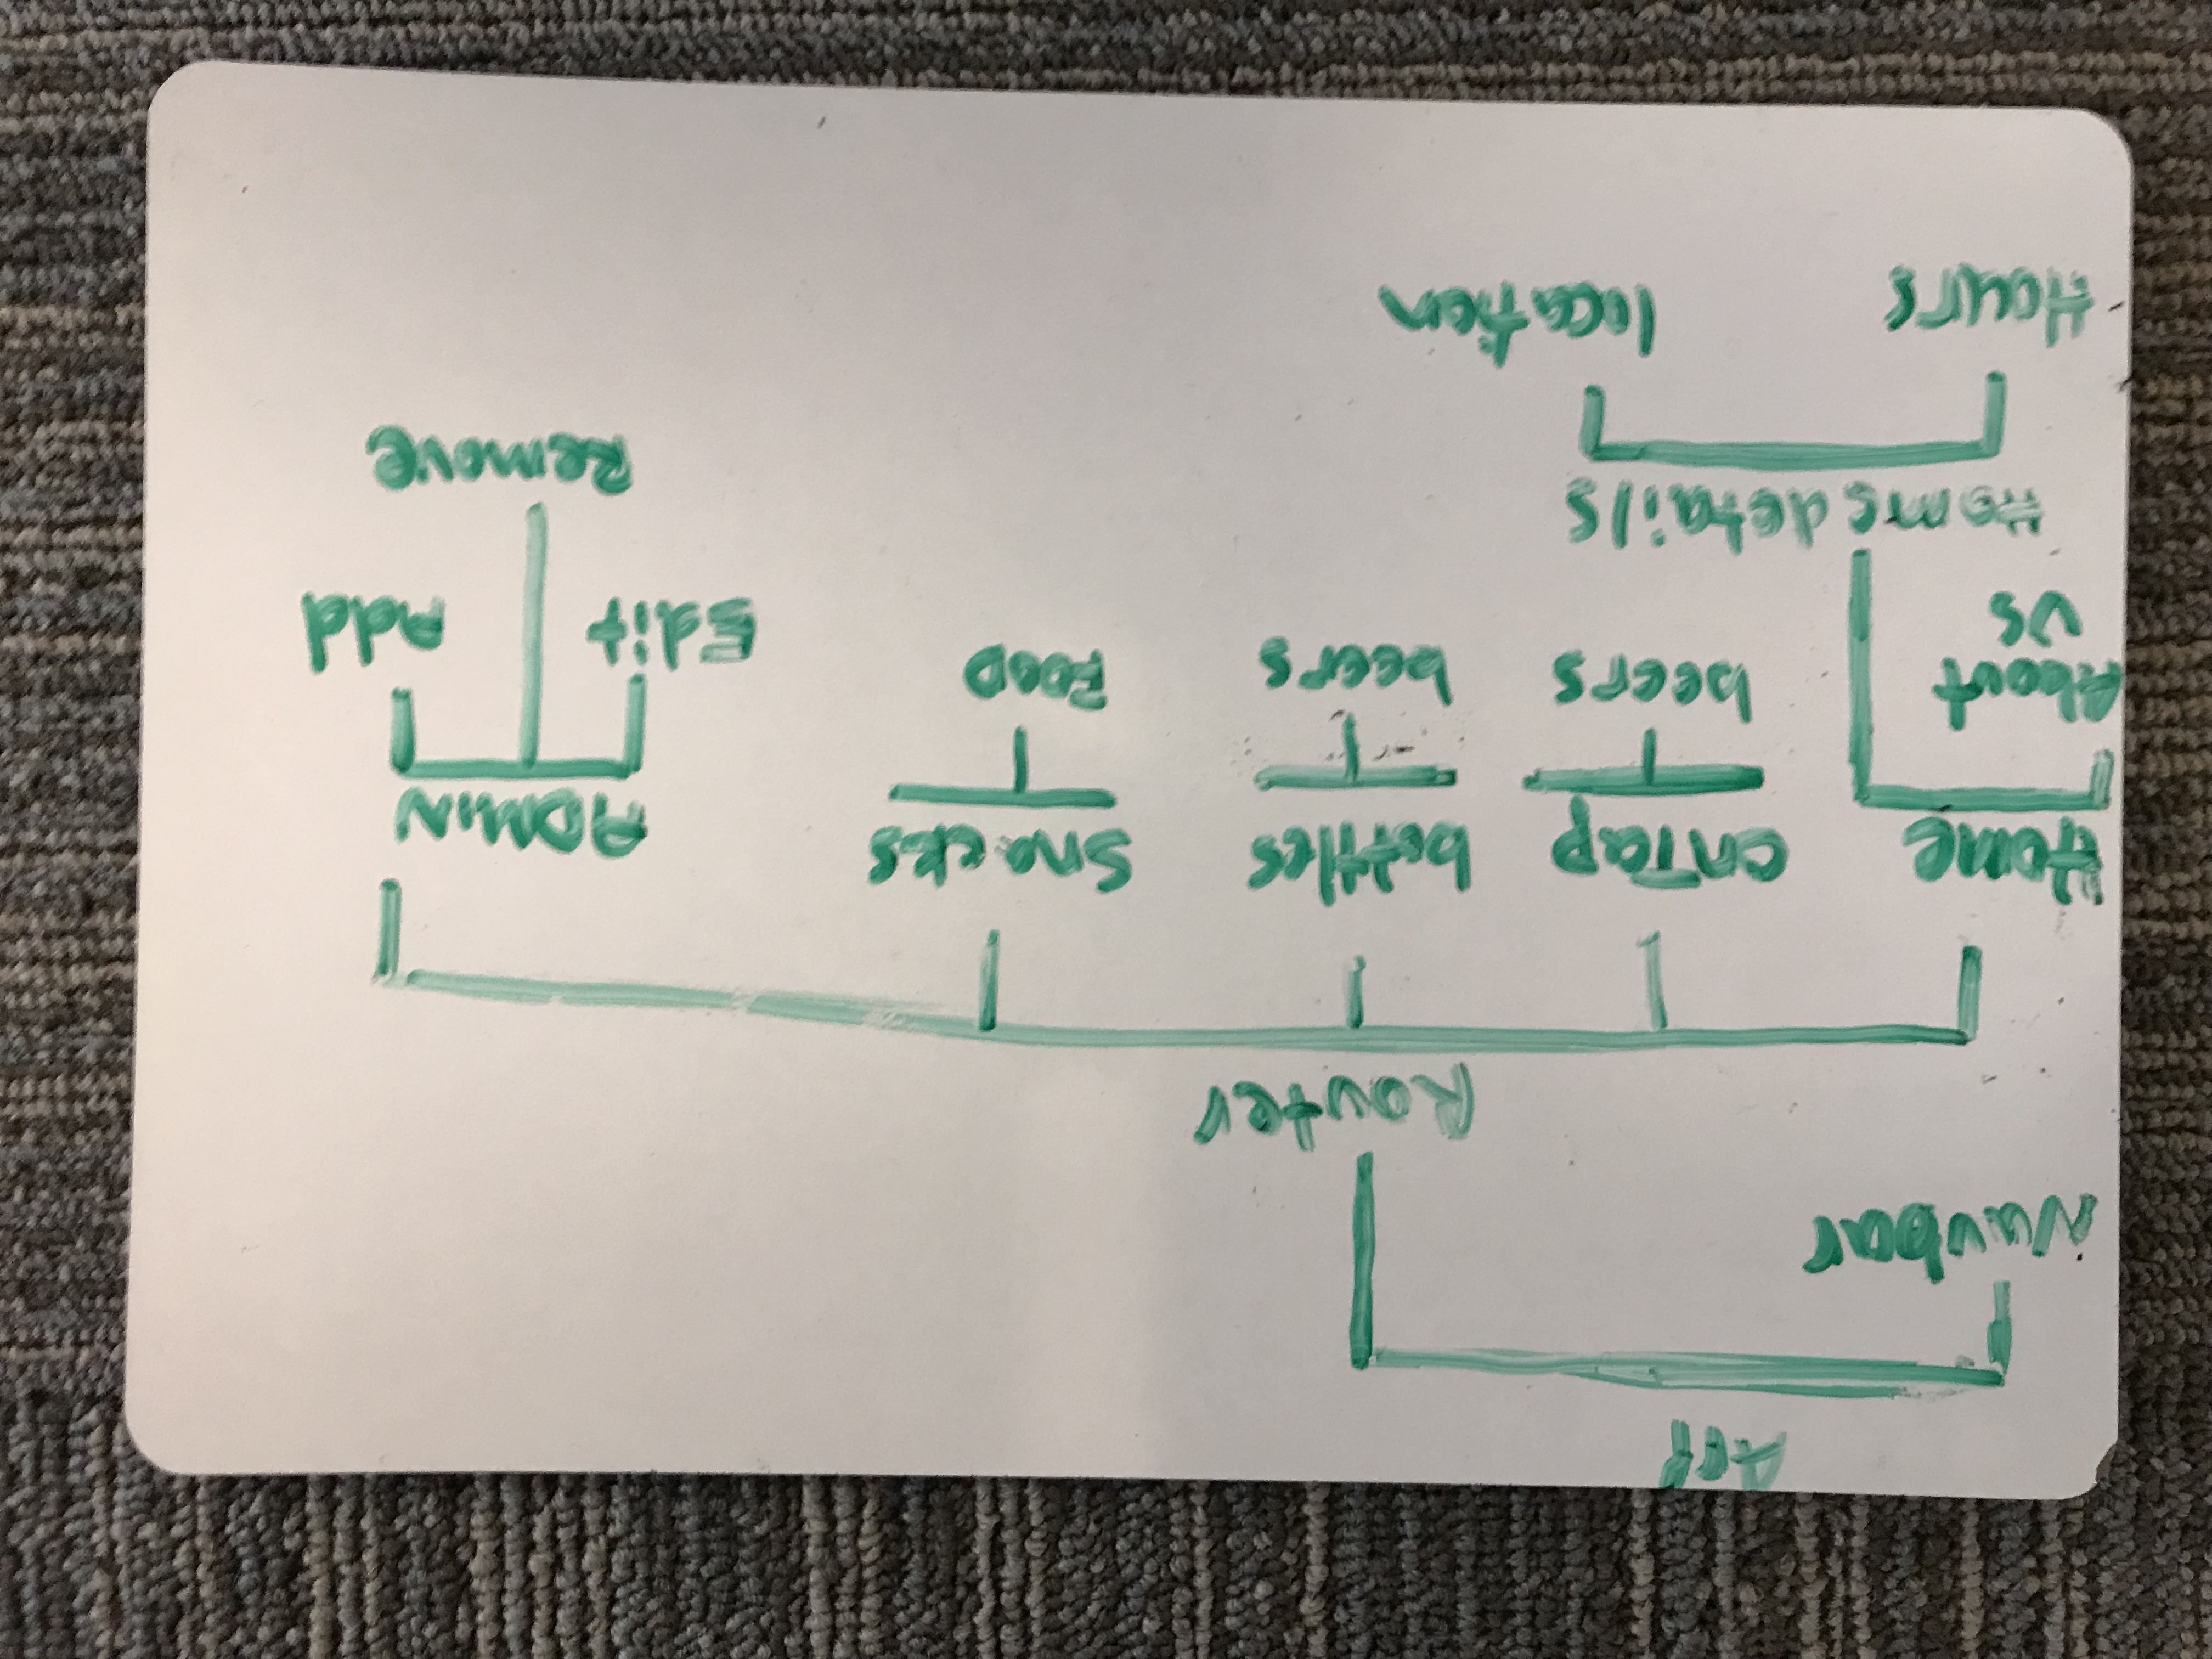 App
Navbar
Router
Home onTap bottles Snacks ADMIN
About beers beers FOOD Edit Add
US
Homedetails
Remove
Hours location